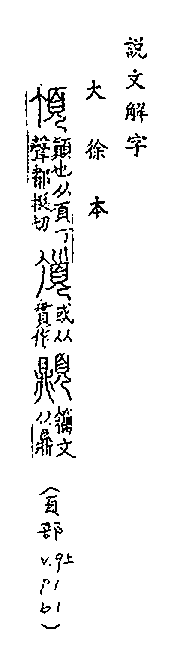 說文解字
大徐本
頂 顛也从頁丁聲都挺切 𩠑 或从𩠐作 𩕢 籒文从鼎 (頁部 v.9上 P1 b1)